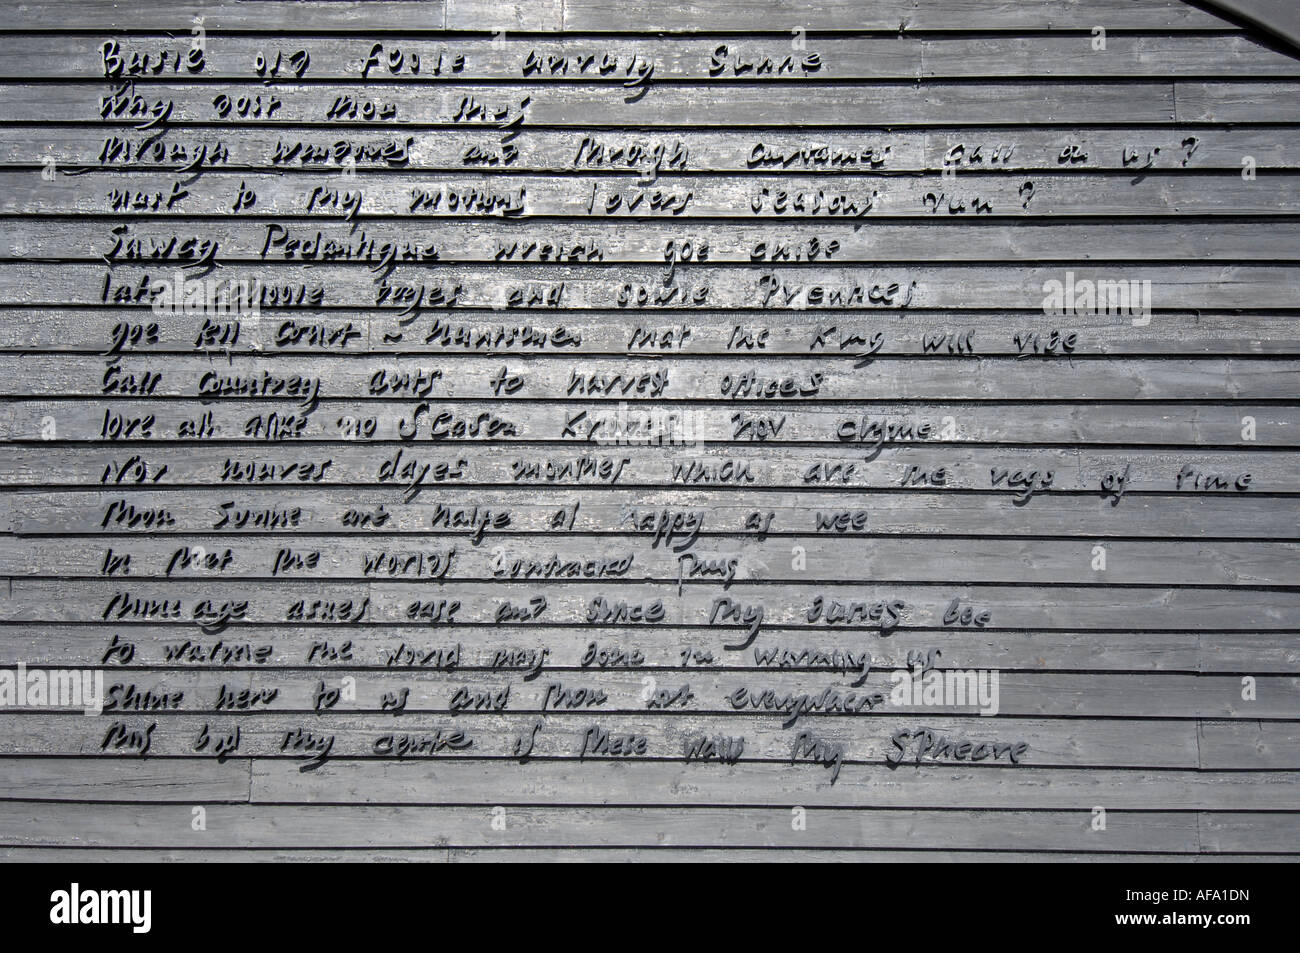 Busie old foole unruly Sunne
Why dost thou thus
through windows and through curtaines call on us?
must to thy motions lovers seasons run?
Sawcy Pedantique wretch goe chide
late schoole boyes and sowre Prentices
goe tell Court ~ huntsmen that the King will ride
Call Countrey ants to harvest offices
love all alike no Season Knowes nor clyme
Nor houres dayes months which are the rags of time
thou Sunne art halfe as happy as wee
In that the world's contracted thus
thine age askes ease and since thy duties bee
to warme the world thats done in warming us
Shine here to us and thou art everywhere
this bed thy centre is these walls thy Spheare
alamy
alamy
Image ID: AFA1DN
www.alamy.com